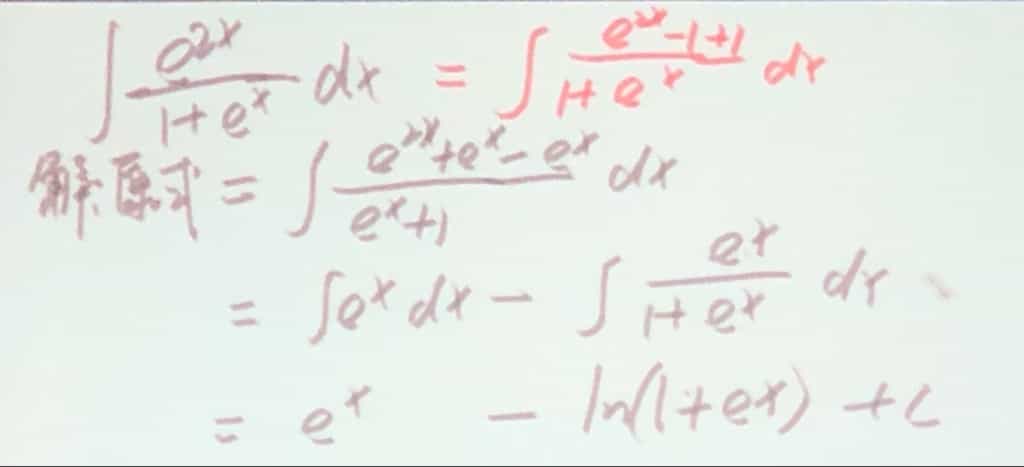 ∫ e^{2x}/(1+e^x) dx = ∫ (e^{2x}-1+1)/(1+e^x) dx
解:原式 = ∫ (e^{2x}+e^x-e^x)/(e^x+1) dx
= ∫e^x dx - ∫ e^x/(1+e^x) dx
= e^x - ln(1+e^x) + C